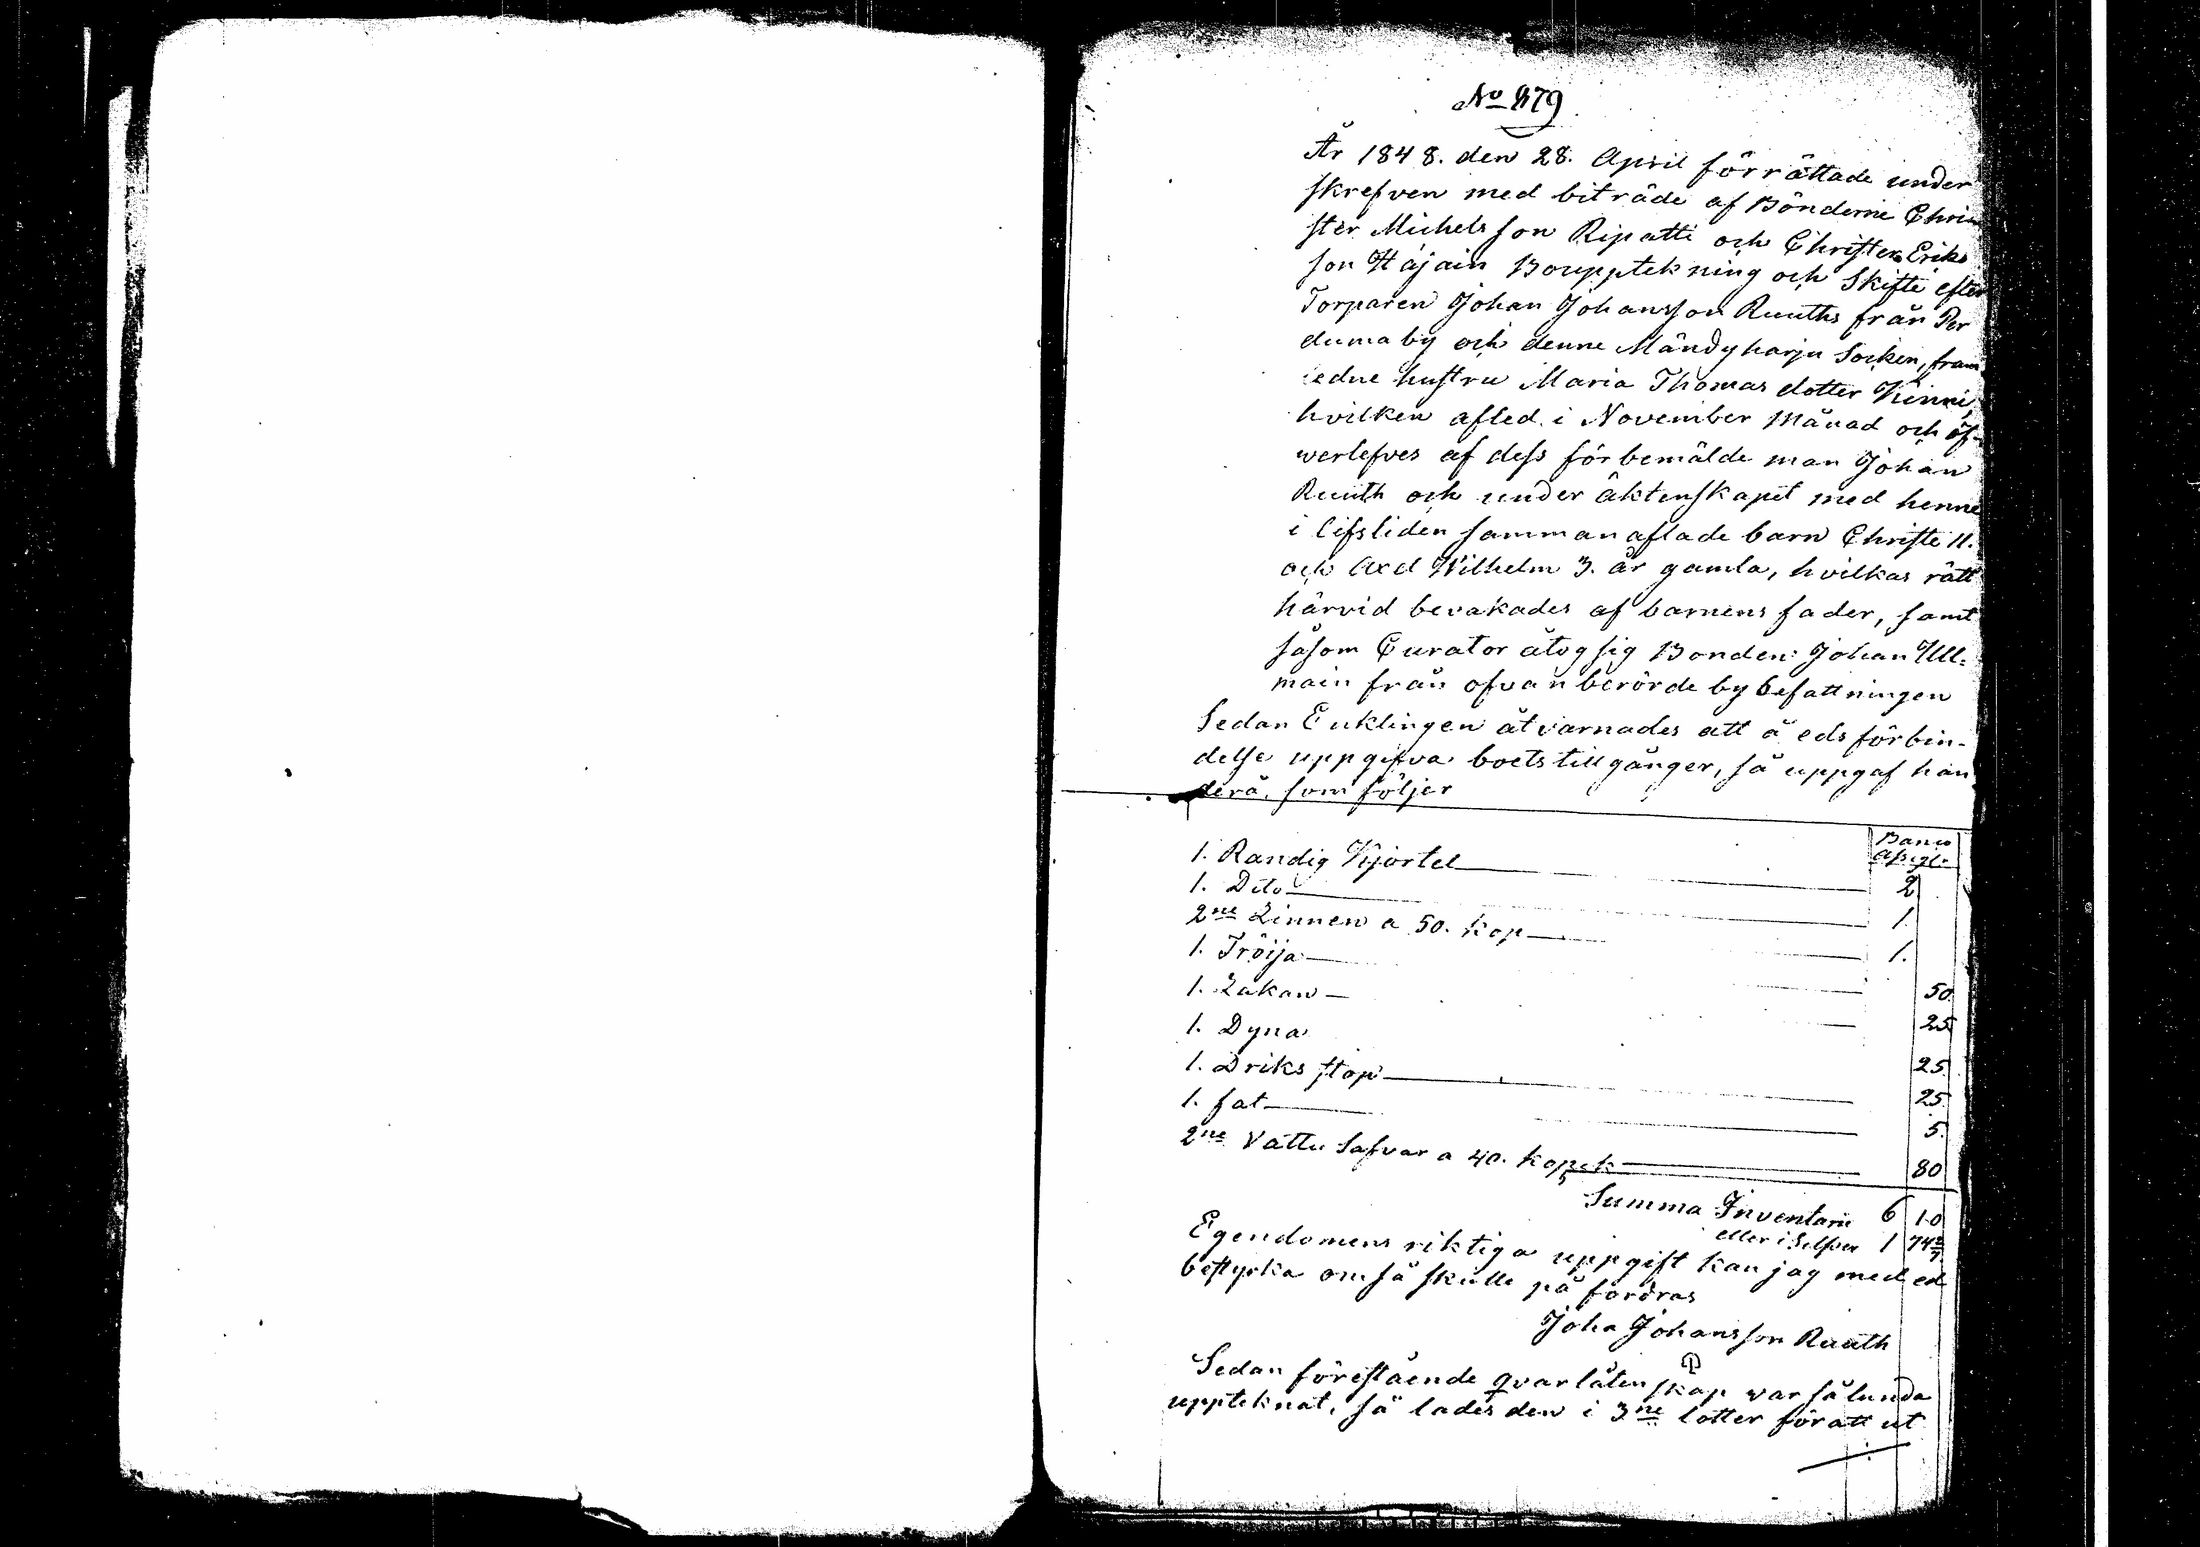 No 879
År 1848. den 28. April förrättade under
skrefven med biträde af Bönderne Chri
ster Michelsson Ripatti och Christer Eriks
son Häjäin Boupptekning och Skifte efter
Torparen Johan Johansson Ruuths från Per
duma by och denne Mändyharju Socken, fram
ledne hustru Maria Thomas dotter Kinni,
hvilken afled i November Månad och öf-
werlefves af dess förbemälde man Johan
Ruuth och under äktenskapet med henne
i lifstiden samman aflade barn Christe 11.
och Axel Wilhelm 3. år gamla, hvilkas rätt
härvid bevakades af barnens fader, samt
såsom Curator åtog sig Bonden: Johan Ull-
main från ofvanberörde by befattningen
Sedan Enklingen åtvarnades att å eds förbin-
delse uppgifva boets tillgånger, så uppgaf han
derå, som följer
Banco
Assigt.
1. Randig Kjortel 2
1. Dito 1
2ne Linnen a 50. kop 1.
1. Tröija 50.
1. Lakan 25
1. Dyna 25
1. Driks stop 25
1. fat 5.
2ne Vattu Safvar a 40. kopek 80
Summa Inventarii 6 10
eller i Silfver 1 74 2/7
Egendomens riktiga uppgift kan jag med ed
bestyrka om så skulle på fordras
Joha Johansson Ruuth
Sedan förestående qvarlåtenskap var sålunda
uppteknat, så lades den i 3ne lotter för att ut